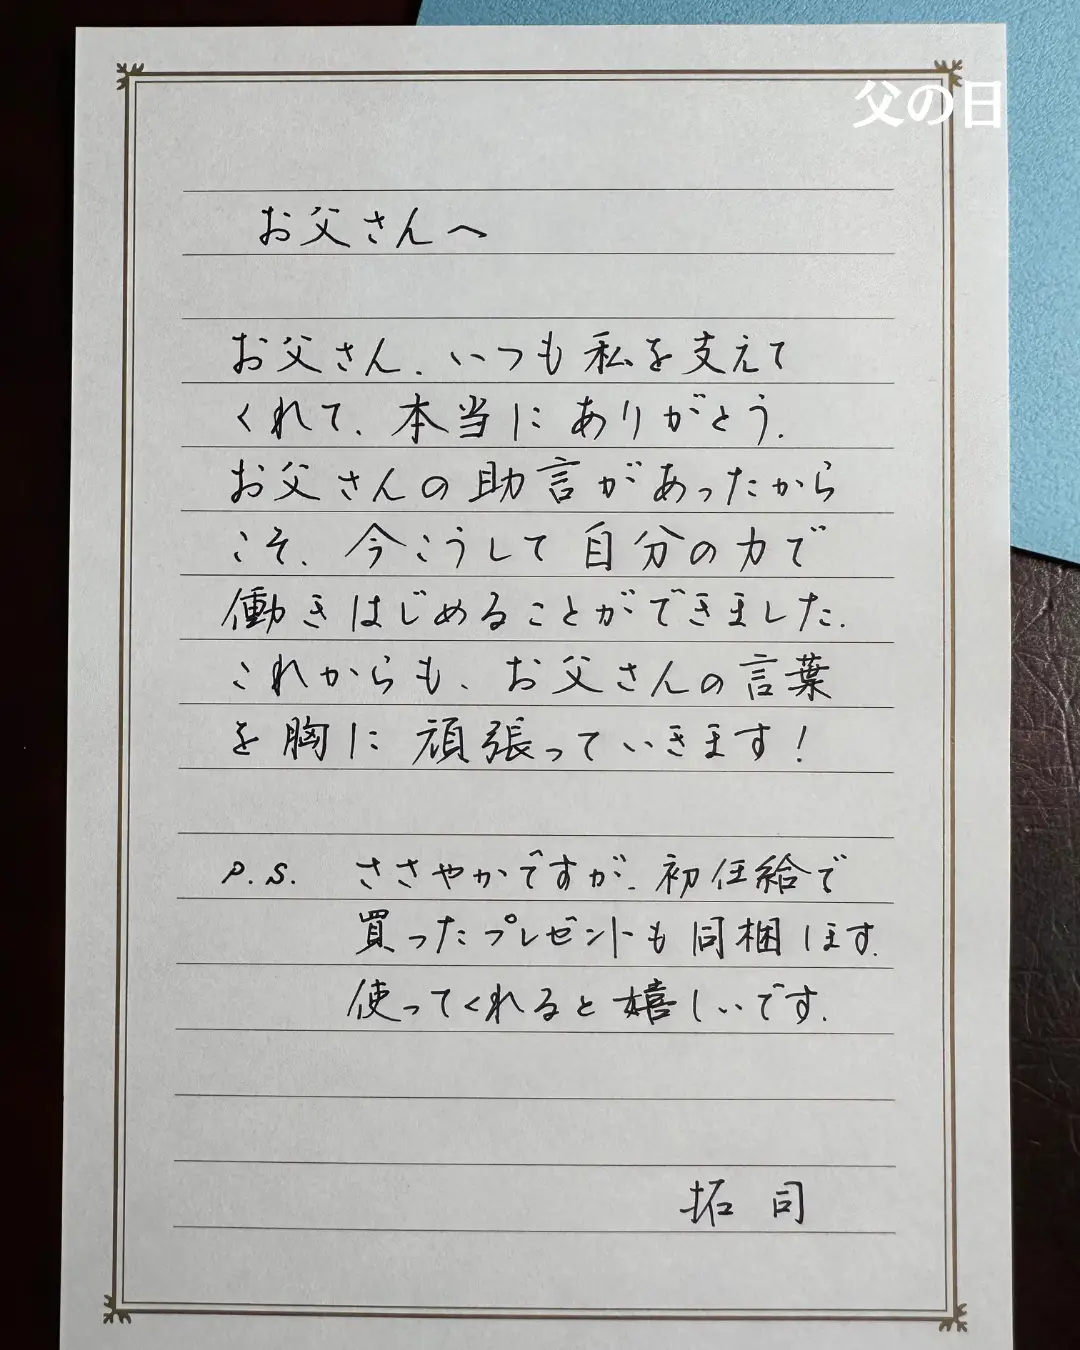 父の日
お父さんへ
お父さん、いつも私を支えて
くれて、本当にありがとう。
お父さんの助言があったから
こそ、今こうして自分の力で
働きはじめることができました。
これからも、お父さんの言葉
を胸に頑張っていきます！
P.S. ささやかですが、初任給で
買ったプレゼントも同梱します。
使ってくれると嬉しいです。
拓司